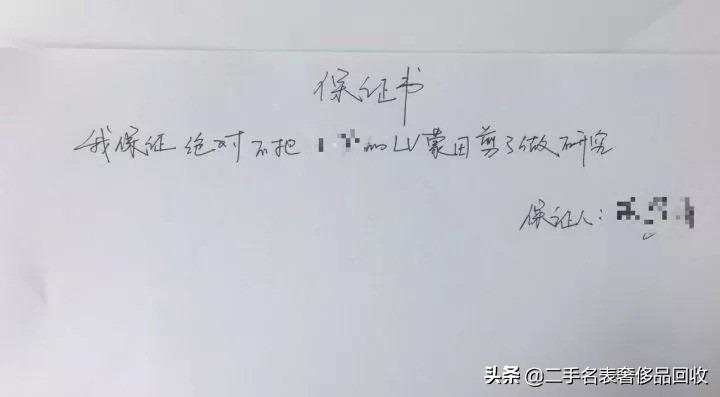 保证书
我保证绝对不把的LV蒙田剪了做研究
保证人：
头条 @二手名表奢侈品回收